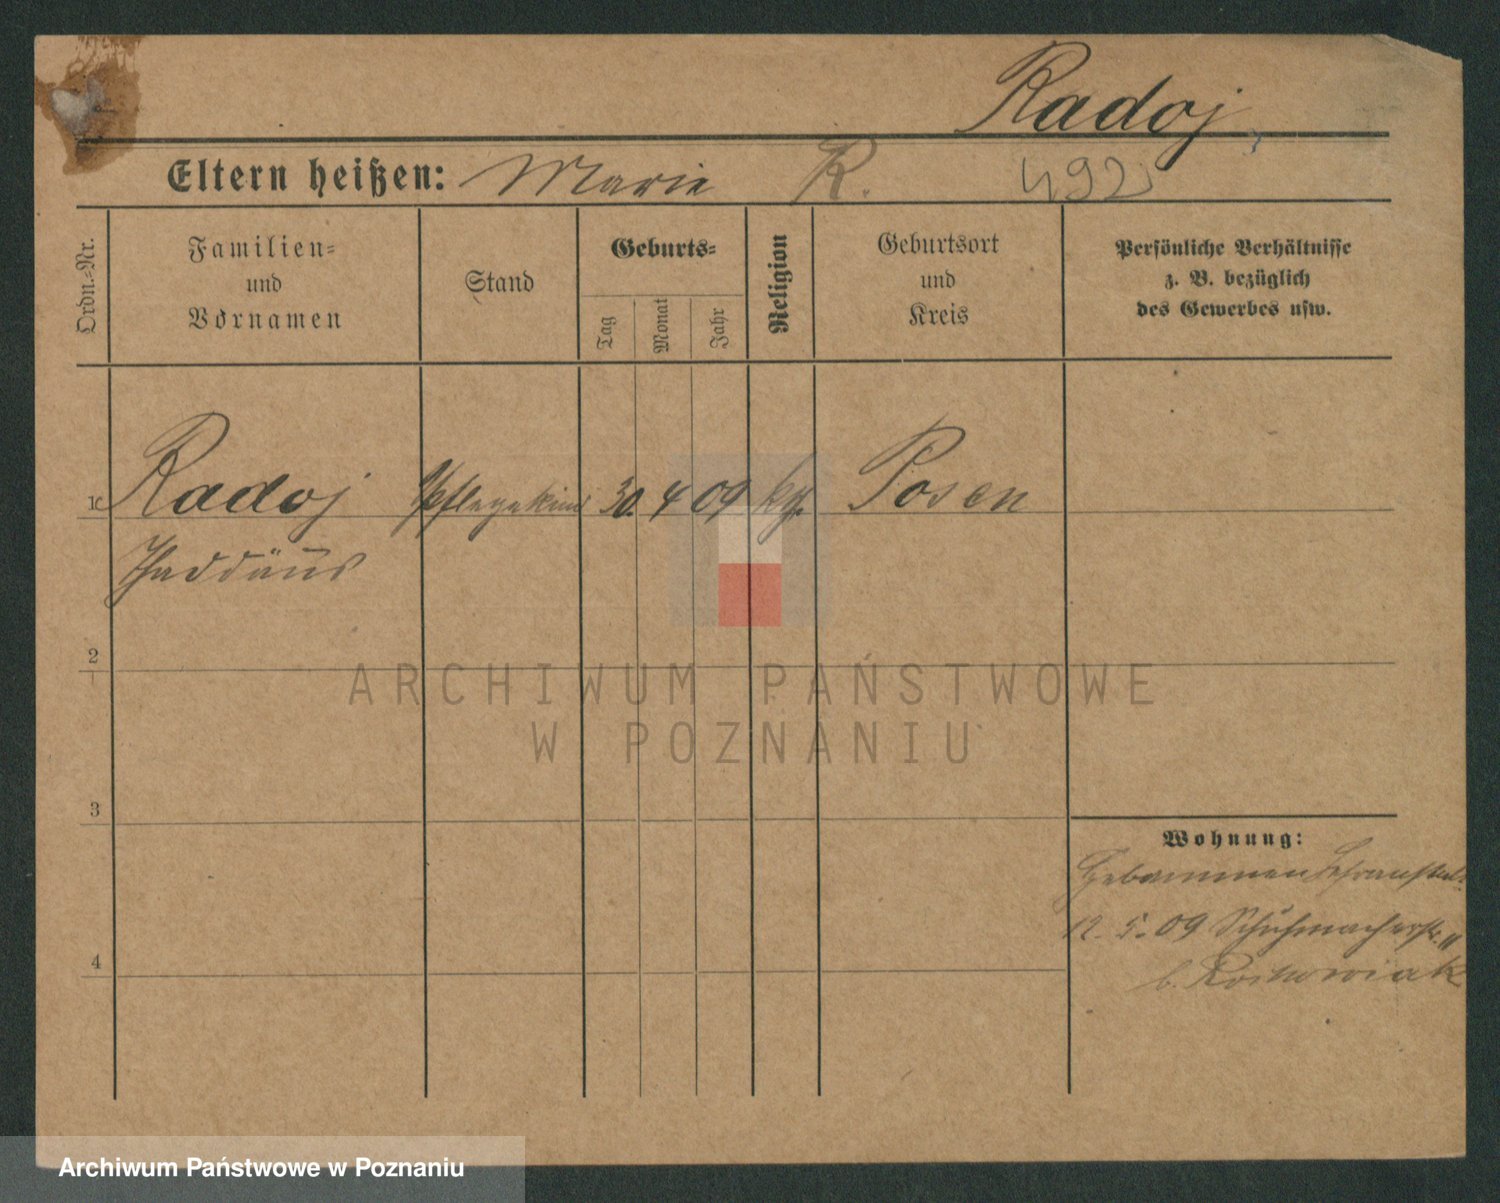 Radoj
Eltern heißen: Marie R. 492
Ordn.-Nr.
Familien-
und
Vornamen
Stand
Geburts-
Tag
Monat
Jahr
Religion
Geburtsort
und
Kreis
Persönliche Verhältnisse
z. B. bezüglich
des Gewerbes usw.
1 Radoj Pflegekind 30. 4 09 kth. Posen
Thaddäus
2
3
4
Wohnung:
Hebammen Lehranstalt
12. 5. 09 Schuhmacherstr. 11
b.
ARCHIWUM PAŃSTWOWE
W POZNANIU
Archiwum Państwowe w Poznaniu